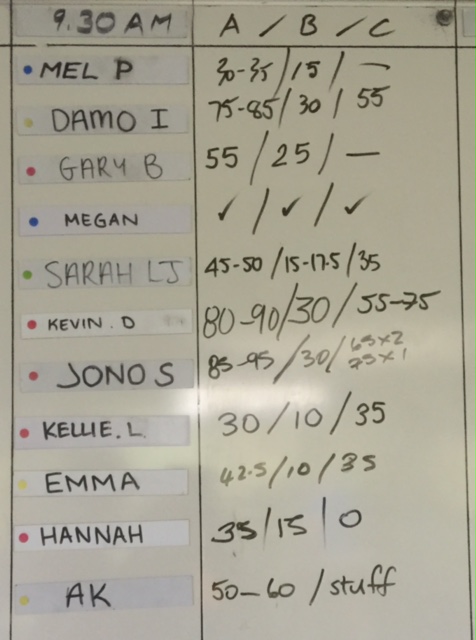 9.30 AM A / B / C
MEL P 30-35/15/—
DAMO I 75-85/30/55
GARY B 55/25/—
MEGAN ✓/✓/✓
SARAH LJ 45-50/15-17.5/35
KEVIN. D 80-90/30/55-75
JONO S 85-95/30/65x2
75x1
KELLIE. L 30/10/35
EMMA 42.5/10/35
HANNAH 35/15/0
AK 50-60/stuff